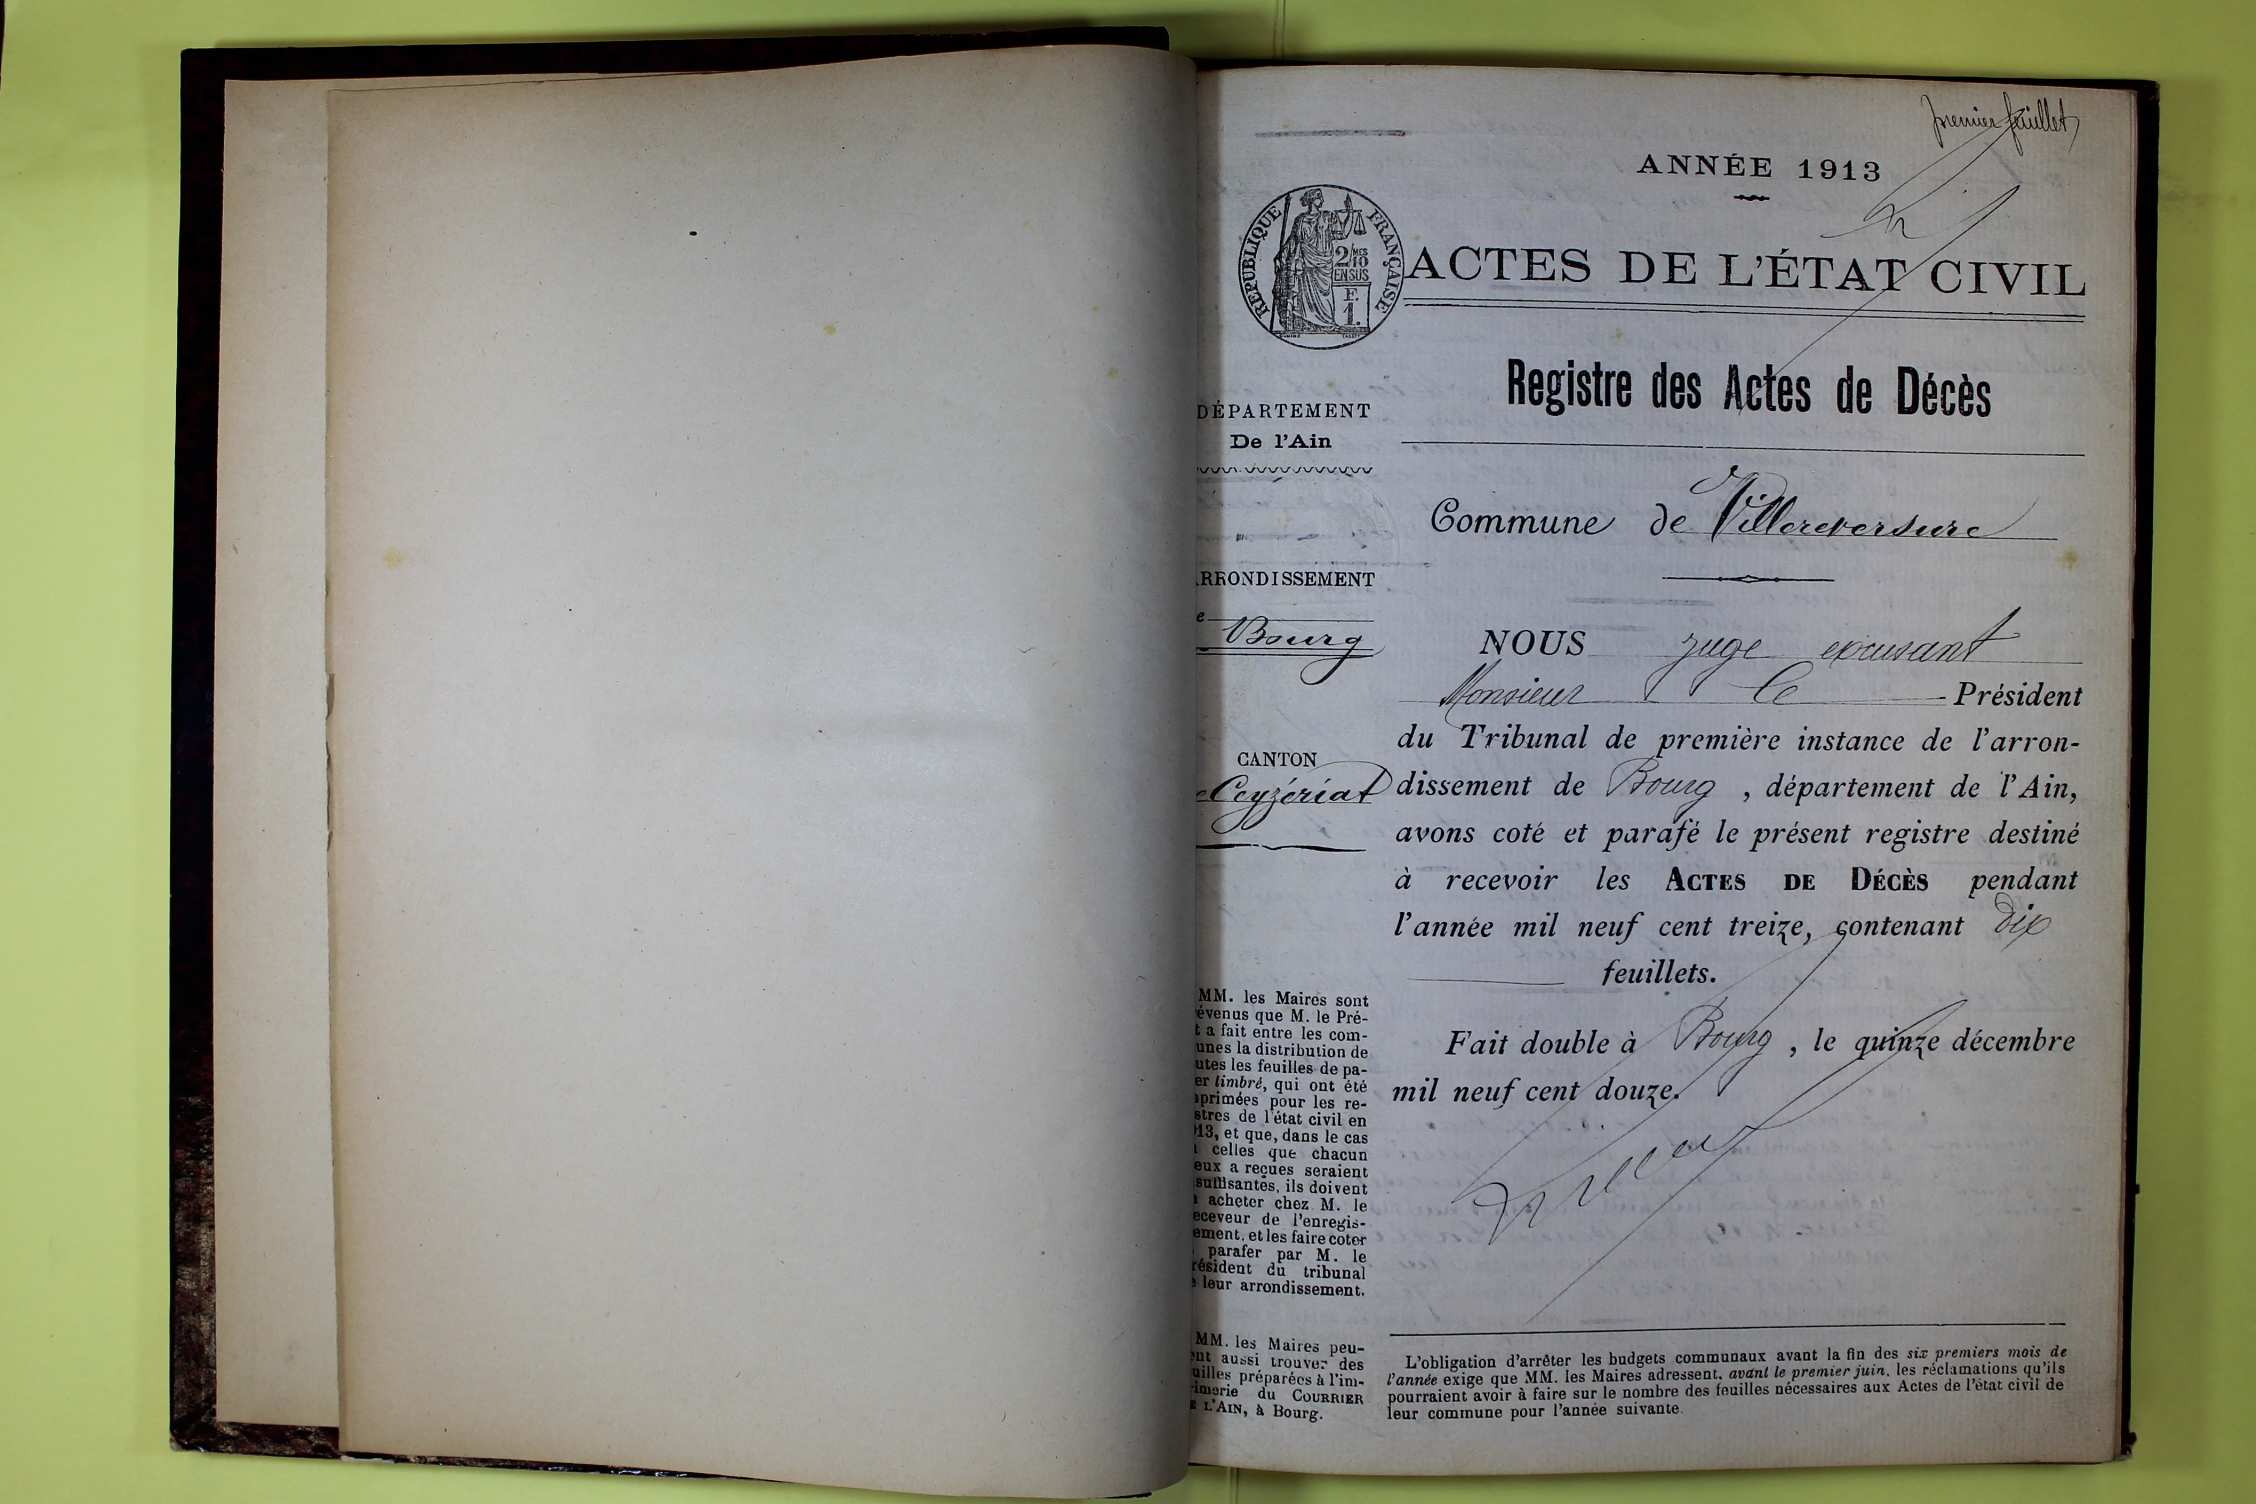 premier feuillet
ANNÉE 1913
RÉPUBLIQUE FRANÇAISE
2/10 MES
EN SUS
F.
1.
ACTES DE L'ÉTAT CIVIL
Registre des Actes de Décès
DÉPARTEMENT
De l'Ain
Commune de Villereversure
RRONDISSEMENT
e
Bourg
CANTON
e Ceyzériat
NOUS juge excusant
Monsieur le Président
du Tribunal de première instance de l'arron-
dissement de Bourg, département de l'Ain,
avons coté et parafé le présent registre destiné
à recevoir les ACTES DE DÉCÈS pendant
l'année mil neuf cent treize, contenant dix
feuillets.
Fait double à Bourg, le quinze décembre
mil neuf cent douze.
MM. les Maires sont
évenus que M. le Pré-
t a fait entre les com-
unes la distribution de
utes les feuilles de pa-
er timbré, qui ont été
primées pour les re-
stres de l'état civil en
13, et que, dans le cas
celles que chacun
eux a reçues seraient
suffisantes, ils doivent
acheter chez M. le
eceveur de l'enregis-
ement, et les faire coter
parafer par M. le
résident du tribunal
e leur arrondissement.
MM. les Maires peu-
ent aussi trouver des
uilles préparées à l'im-
rimerie du COURRIER
E L'AIN, à Bourg.
L'obligation d'arrêter les budgets communaux avant la fin des six premiers mois de
l'année exige que MM. les Maires adressent, avant le premier juin, les réclamations qu'ils
pourraient avoir à faire sur le nombre des feuilles nécessaires aux Actes de l'état civil de
leur commune pour l'année suivante.